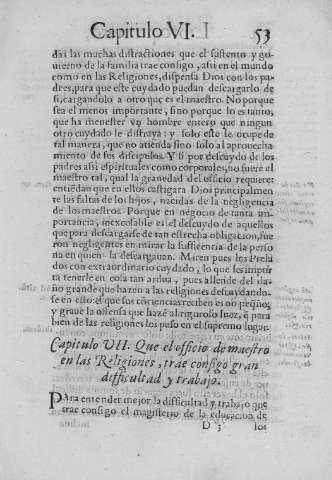 Capitulo VI.
53
das las muchas distractiones que el sustento y go-
uierno de la familia trae consigo, assi en el mundo
como en las Religiones, dispensa Dios con los pa-
dres, para que este cuydado puedan descargarlo de
si, cargandolo a otro que es el maestro. No porque
sea el menos importante, sino porque lo es tanto,
que ha menester vn hombre entero que ningun
otro cuydado le distraya: y solo este le ocupe de
tal manera, que no atienda sino solo al aprouecha-
miento de sus discipulos. Y si por descuydo de los
padres assi espirituales como corporales, no fuere el
maestro tal, qual la grauedad del officio requiere:
entiēdan que en ellos castigara Dios principalmen
te las faltas de los hijos, nacidas de la negligencia
de los maestros. Porque en negocio de tanta im-
portancia, inexcusable es el descuydo de aquellos
que para descargarse de tan estrecha obligacion, fue
ron negligentes en mirar la sufficiencia de la perso
na en quien la descargauan. Miren pues los Prela
dos con extraordinario cuydado, lo que les impor
ta tenerle en cosa tan ardua, pues allende del da-
ño grande que hazen a las religiones descuydando-
se en esto: el que sus cōciencias reciben es no pequño,
y graue la offensa que hazē al riguroso Iuez, q̄ para
bien de las religiones los puso en el supremo lugar.
Capitulo VII. Que el officio de maestro
en las Religiones, trae consigo gran
difficultad y trabajo.
Para entender mejor la difficultad y trabajo que
trae consigo el magisterio de la educacion de
D 3
los